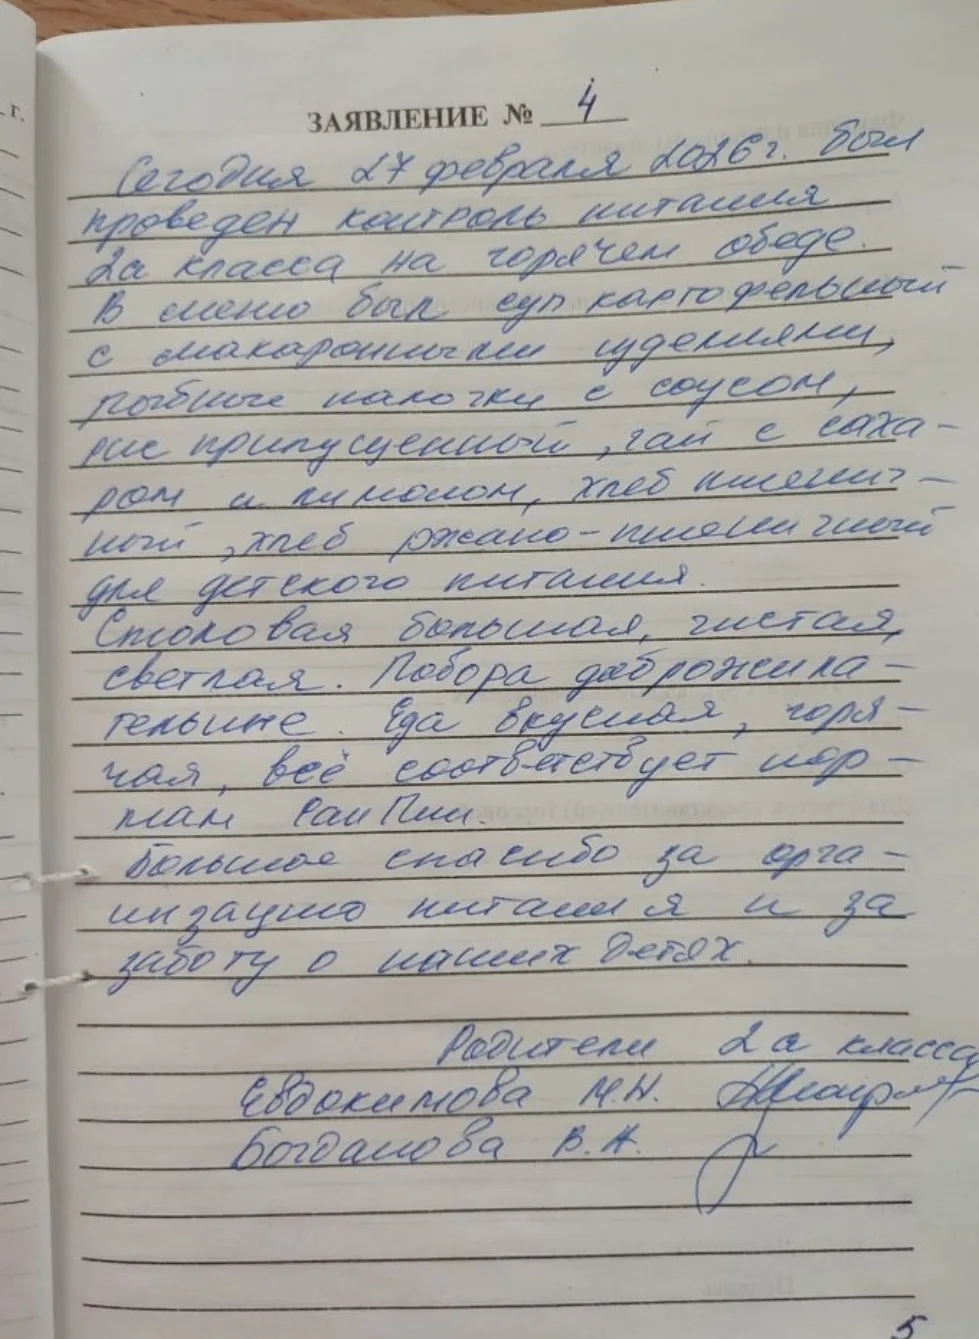 ЗАЯВЛЕНИЕ № 4
Сегодня 27 февраля 2026 г. был
проведен контроль питания
2а класса на горячем обеде.
В меню был суп картофельный
с макаронными изделиями,
рыбные палочки с соусом,
рис припущенный, чай с саха-
ром и лимоном, хлеб пшенич-
ный, хлеб ржано-пшеничный
для детского питания.
Столовая большая, чистая,
светлая. Повора доброжила-
тельные. Еда вкусная, горя-
чая, всё соответствует нор-
мам СанПин.
Большое спасибо за орга-
низацию питания и за
заботу о наших детях.
Родители 2а класса
Евдокимова М.Н.
Богданова В.А.
5